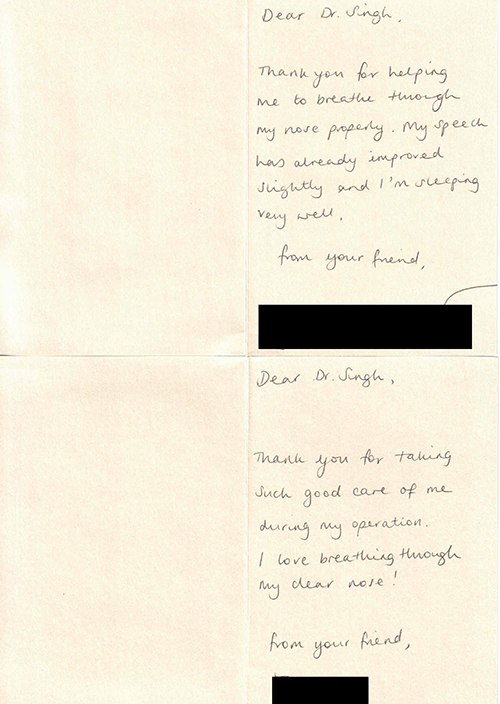 Dear Dr. Singh,
Thank you for helping
me to breathe through
my nose properly. My speech
has already improved
slightly and I'm sleeping
very well.
from your friend,
Dear Dr. Singh,
Thank you for taking
such good care of me
during my operation.
I love breathing through
my clear nose!
from your friend,